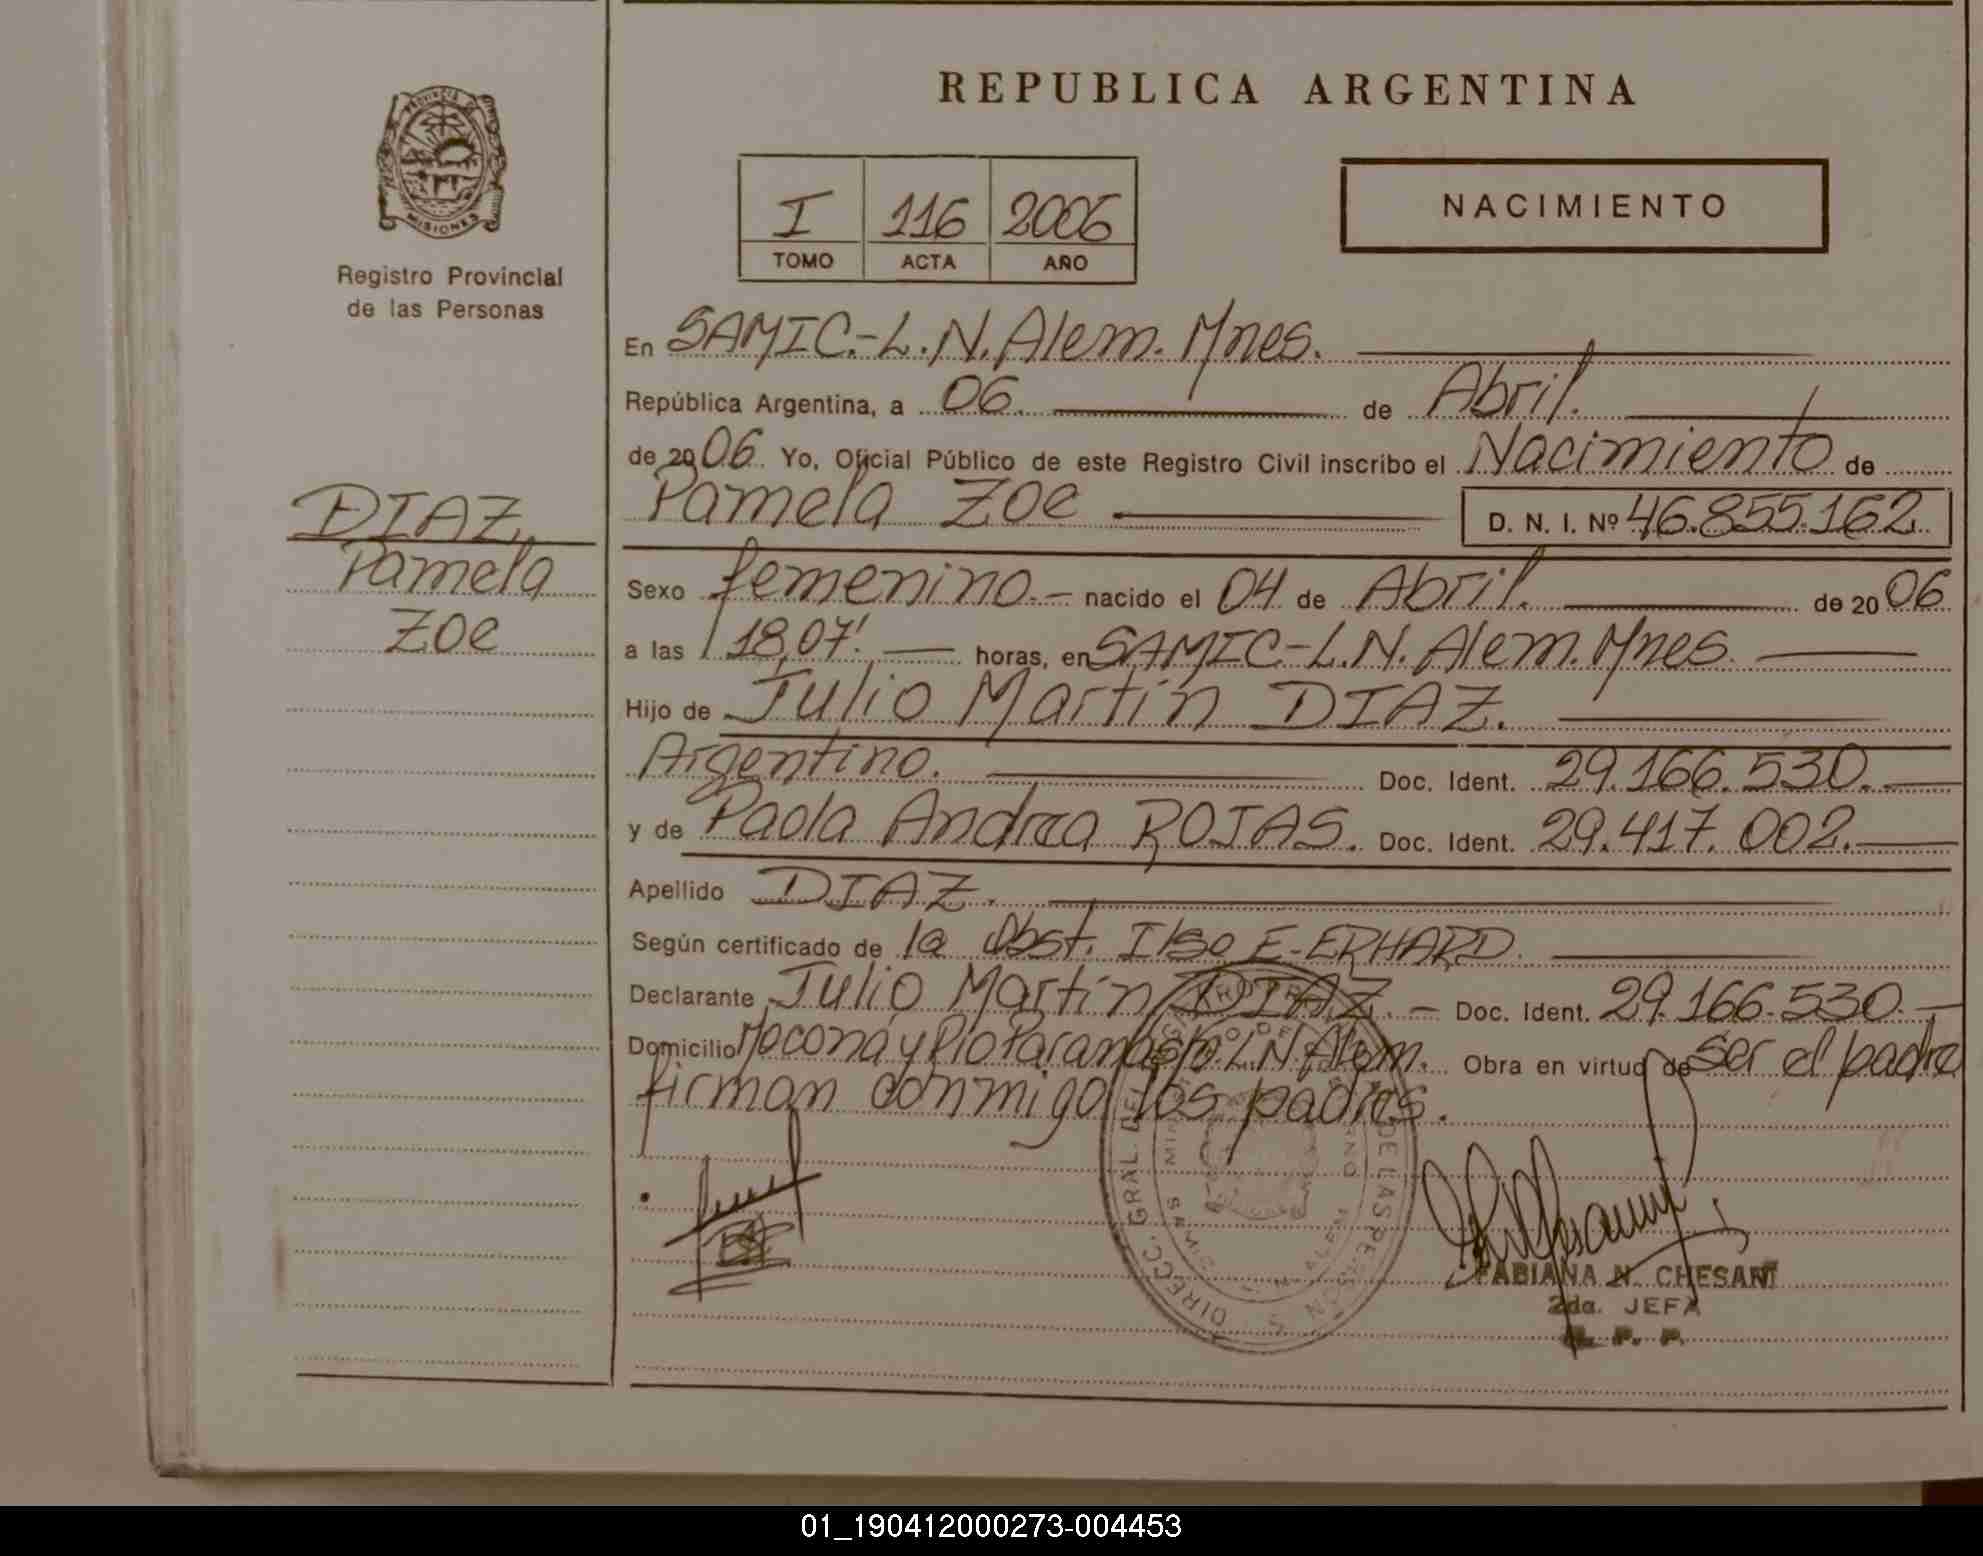 REPUBLICA ARGENTINA
PROVINCIA DE
MISIONES
Registro Provincial
de las Personas
I 116 2006
TOMO ACTA AÑO
NACIMIENTO
En SAMIC.-L.N.Alem. Mnes.
República Argentina, a 06. de Abril.
de 2006. Yo, Oficial Público de este Registro Civil inscribo el Nacimiento de
Pamela Zoe D. N. I. Nº 46.855.162.
DIAZ,
Pamela
Zoe
Sexo femenino.- nacido el 04 de Abril. de 2006
a las 18,07! horas, en SAMIC-L.N. Alem. Mnes.
Hijo de Julio Martín DIAZ.
Argentino. Doc. Ident. 29.166.530.
y de Paola Andrea ROJAS. Doc. Ident. 29.417.002.
Apellido DIAZ.
Según certificado de la Obst. Ilse E. ERHARD.
Declarante Julio Martín DIAZ. - Doc. Ident. 29.166.530.-
Domicilio Moconá y Rio Paraná L.N.Alem. Obra en virtud de ser el padre
firman conmigo los padres.
DIRECC. GRAL. DEL DE LAS PERSONAS
FABIANA N. CHESANI
2da. JEFA
R. P. P.
01_190412000273-004453